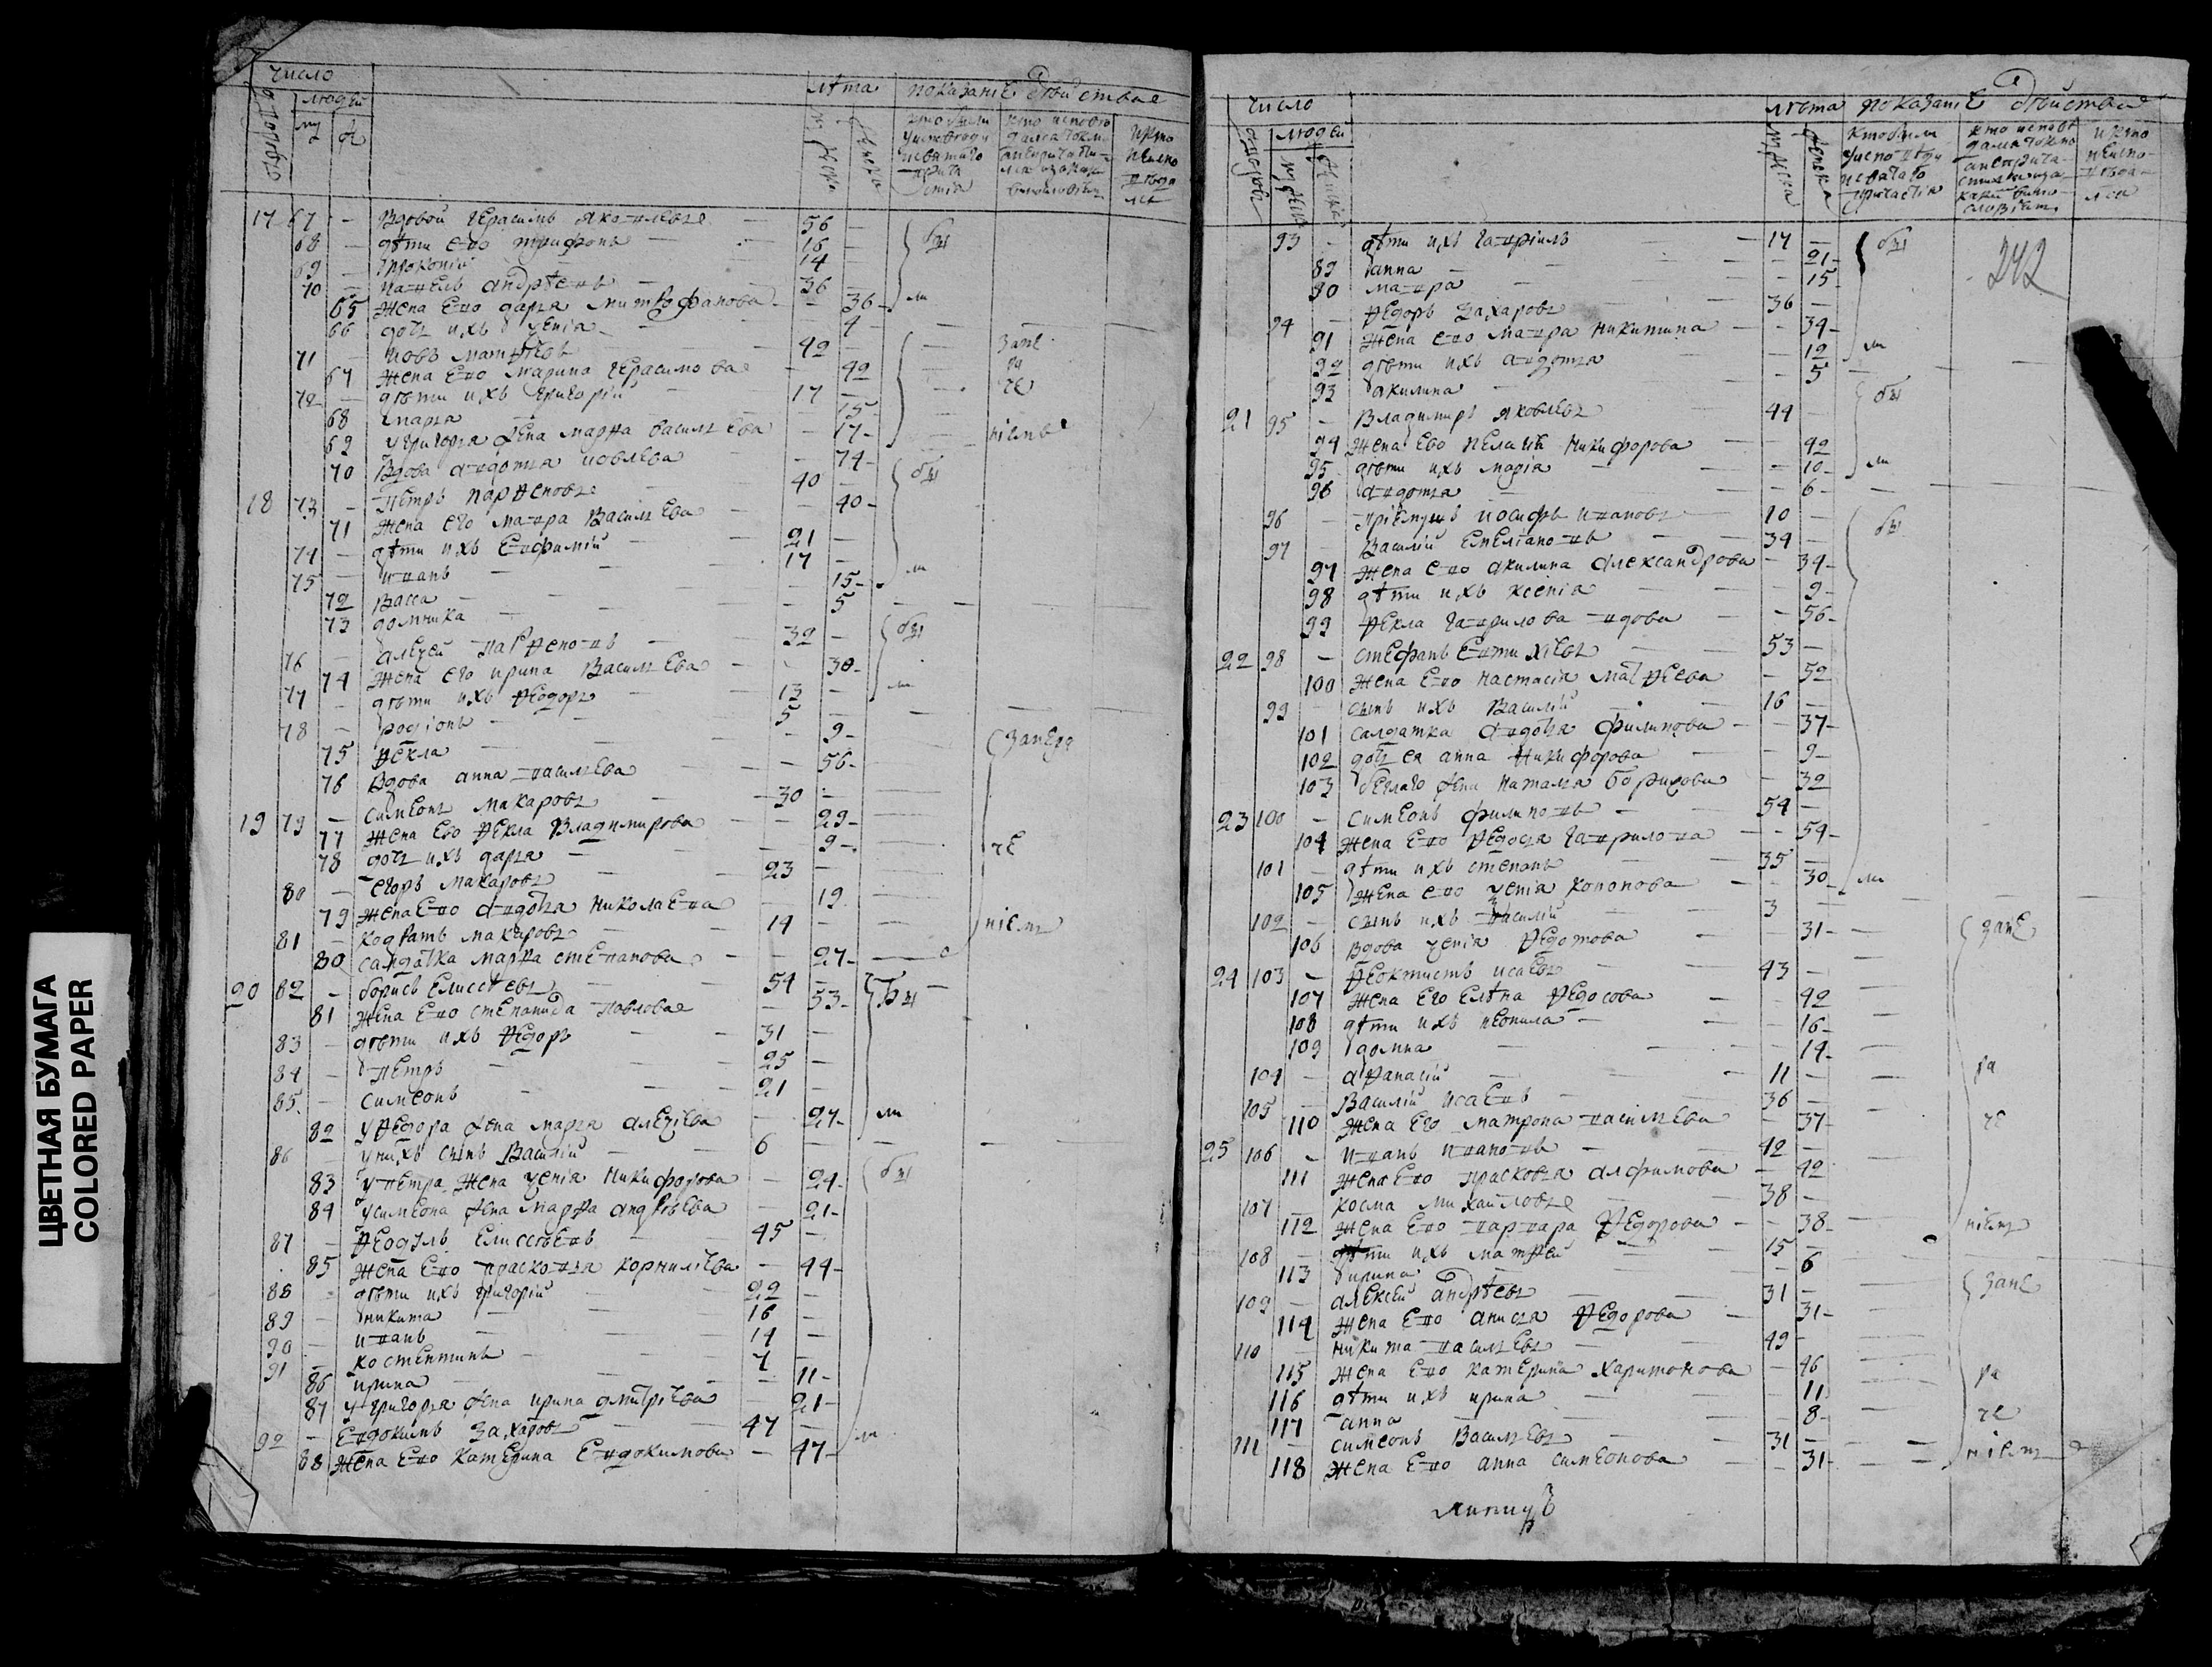 ЦВЕТНАЯ БУМАГА
COLORED PAPER
число лѣта показание действа
людей
17 67 - Вдовой Герасимъ Яковлевъ - 56 - бы
68 - дѣти ево трифонъ - 16 -
69 - прокопий - 14 -
70 - павелъ андрѣевъ - 36 -
65 Жена Ево дарья митрофанова - 36 - ли
66 дочь ихъ - 4 -
71 - иовъ матвѣевъ - 42 - зане
67 Жена Ево марина герасимова - 42 - ра
72 - дѣти ихъ григорий 17 - че
68 марья - 15 -
69 у григорья жена марѳа васильева - 17 - ніемъ
70 Вдова авдотья иовлева - 74 -
18 73 - Петръ парѳеновъ 40 - бы
71 Жена его мавра Васильева - 40 -
74 - дѣти ихъ Евфимий - 21 -
75 - иванъ - 17 -
72 Васса - 15 - ли
73 домника - 5 -
76 - алеѯей парѳеновъ - 32 - бы
74 Жена его ирина Васильева - 30 -
77 - дѣти ихъ ѳедоръ - 13 - ли
78 - родионъ - 5 -
75 ѳекла - 9 -
76 Вдова анна васильева - 56 -
19 79 - симеонъ макаровъ - 30 -
77 Жена Ево ѳекла Владимирова - 29 -
78 дочь ихъ дарья - 9 - че
80 - Егоръ макаровъ - 23 -
79 Жена Ево авдотья николаева - 19
81 - кодратъ макаровъ - 14 - ніемъ
80 салдатка марѳа степанова - 27 -
20 82 - борисъ Елисѣевъ - 54 - бы
81 Жена Ево степанида павлова - 53 -
83 - дѣти ихъ ѳедоръ - 31 -
84 - петръ - 25 -
85 - симеонъ - 21 -
82 у ѳедора жена марья алеѯиева - 27 - ли
86 - у нихъ сынъ Василий - 6 -
83 у петра жена никифорова - 24 - бы
84 у симеона жена марѳа андреева - 21 -
87 - ѳеодулъ Елисѣевъ - 45 -
85 Жена Ево прасковья корнилиева - 44 -
88 - дѣти ихъ григорий - 22 -
89 - никита - 16 -
90 - иванъ - 14 -
91 - костентинъ - 7 -
86 ирина - 11 -
87 у григорья жена ирина дмитриева - 21 -
92 - Евдокимъ захаровъ - 47 -
88 Жена Ево катерина Евдокимова - 47 - ли
число лѣта показание действа
людей
242
93 - дѣти ихъ гаврилъ - 17 - бы
89 анна - 21 -
90 мавра - 15 -
94 - ѳедоръ Захаровъ 36 -
91 Жена ево мавра никитина - 34 -
92 дѣти ихъ авдотья - 12 - ли
93 акилина - 5 -
21 95 - Владимиръ Яковлевъ 44 - бы
94 Жена Ево никифорова - 42
95 дѣти ихъ мария - 10 - ли
96 авдотья - 6 -
96 - приемышъ иосифъ ивановъ - 10 - бы
97 - Василий Емелиановъ - 34 -
97 Жена ево акилина александрова - 34 -
98 дѣти ихъ ксения - 9 -
99 ѳекла гаврилова вдова - 56 -
22 98 - стефанъ Евтихиевъ - 53 -
100 Жена Ево настасия матвеева - 52
99 - сынъ ихъ Василий - 16 -
101 салдатка авдотья филипова - 37 -
102 дочь ея анна никифорова - 9 -
103 беглаго жена наталья борисова - 32
23 100 - симеонъ филиповъ - 54 -
104 Жена Ево ѳедосья гаврилова - 54 -
101 - дѣти ихъ степанъ - 35 -
105 Жена ево кононова - 30 - ли
102 - сынъ ихъ василий - 3 -
106 вдова ѳедотова - 31 - зане
24 103 - ѳеоктистъ исаевъ - 43 -
107 Жена Его Елѣна ѳедосова - 42
108 дѣти ихъ неонила - 16 -
109 домна - 14 -
104 - аѳанасий - 11 - ра
105 - Василий исаевъ - 36 -
110 Жена Его матрона васильева - 37 - че
25 106 - иванъ ивановъ - 42 -
111 Жена Ево прасковья алфимова - 42
107 - косма михайловъ - 38 -
112 Жена Ево варвара ѳедорова - 38 - ніемъ
108 - дѣти ихъ матвей - 15 -
113 ирина - 6
109 - алексей андрѣевъ - 31 - зане
114 Жена Ево анисья ѳедорова - 31 -
110 - никита васильевъ - 49 -
115 Жена Ево катерина харитонова - 46 - ра
116 дѣти ихъ ирина - 11
117 анна - 8 - че
111 - симеонъ Васильевъ - 31 -
118 Жена Ево анна симеонова - 31 - ніемъ